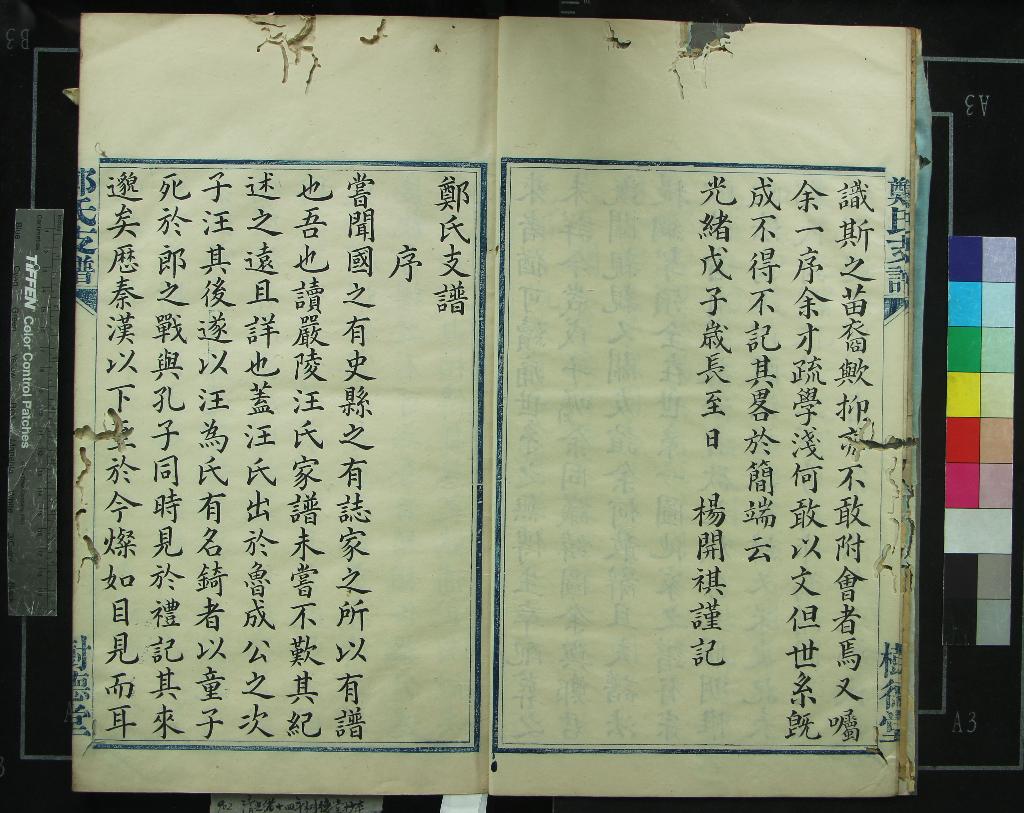 識斯之苗裔歟抑亦不敢附會者焉又囑
余一序余才疏學淺何敢以文但世系旣
成不得不記其畧於簡端云
光緒戊子歲長至日 楊開祺謹記
鄭氏支譜
序
嘗聞國之有史縣之有誌家之所以有譜
也吾也讀嚴陵汪氏家譜未嘗不歎其紀
述之遠且詳也蓋汪氏出於魯成公之次
子汪其後遂以汪為氏有名錡者以童子
死於郎之戰與孔子同時見於禮記其來
邈矣歷秦漢以下至於今燦如目見而耳
鄭氏支譜
樹德堂
TIFFEN Color Control Patches
A3
A3
B3